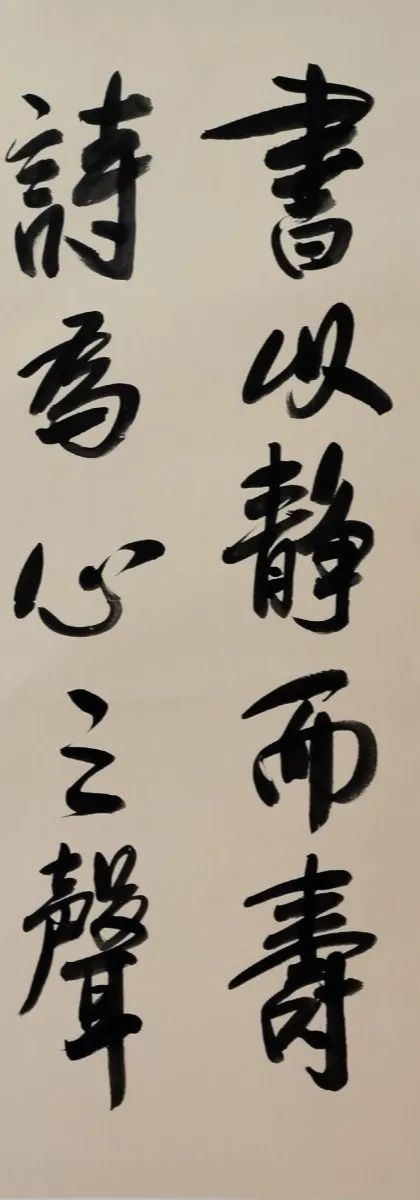 書以静而壽
詩為心之聲